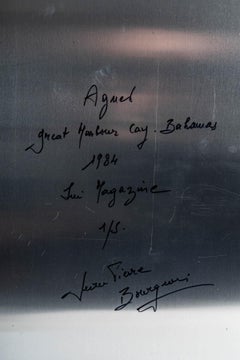 Agnes
Great Harbour Cay. Bahamas
1984
Lui Magazine
1/5.
Jean Pierre
Bourgeois